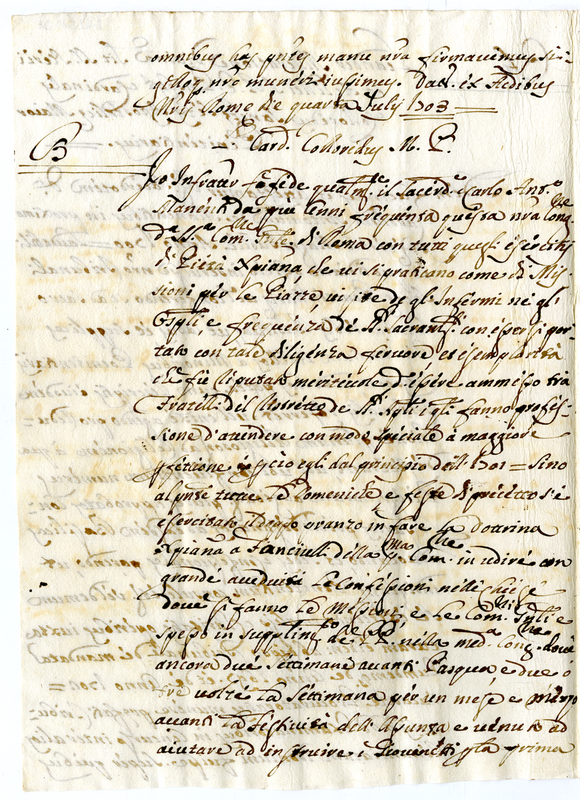 omnibus has pntes manu nra firmavimus Si-
gilloq. nro muniri iussimus. Dat. ex Aedibus
Nris Rome die quarta Julij 1703
Card. Colloredus M. P.
B
Io Infratto fo fede qualmte il Sacerd. Carlo Anto.
da più anni frequenta questa nra Cong.
Com. di Roma con tutti quegli esercitij
di Pietà Xpiana che vi si praticano come di Mis
sioni per le Piazze visite de gl' Infermi ne gl'
Ospli, e frequenza de SSi. Sacramti. con essersi por-
tato con tale diligenza fervore et esemplarità
che fu riputato meritevole d'essere ammesso tra
Fratelli del Ristretto de SSi. Apli i qli fanno profes-
sione d'attendere con modo speciale a maggiore
pfettione e pciò egli dal principio dell' 1701 = sino
al pnte tutte le Domeniche e feste di precetto s'è
esercitato il doppo pranzo in fare la dottrina
Xpiana a Fanciulli della Com. in udire con
grande assiduità le Confessioni nelle Chiese
dove si fanno le Missioni, e le Com. Gnli e
spesso in supplimto de PP. nella meda. Cong. dove
ancora due Settimane avanti Pasqua, e due o
tre volte la Settimana per un mese e mezzo
avanti la Festività dell' Assunta è venuto ad
aiutare ad instruire i Giovinetti p la prima